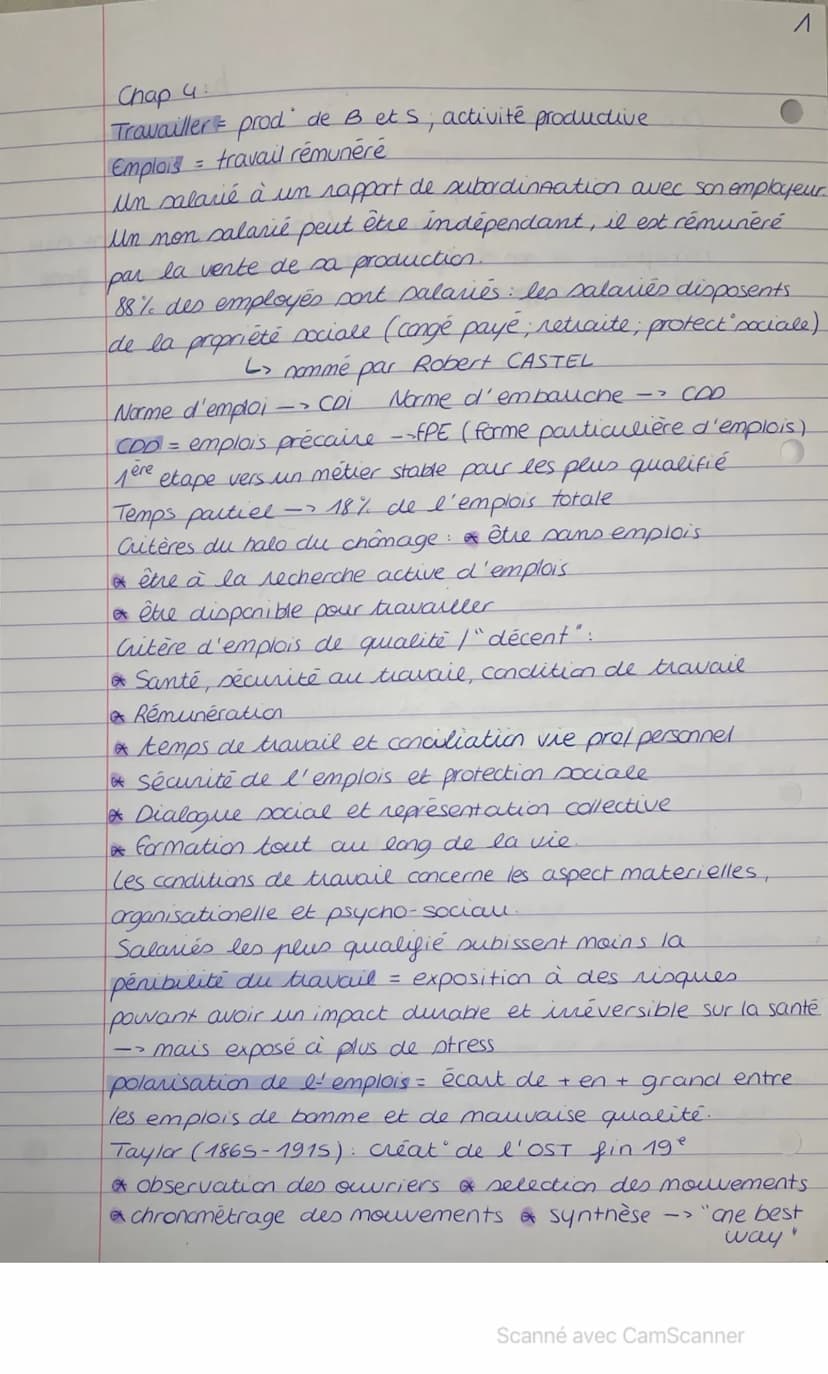 1
Chap 4 :
Travailler = prod° de B et S, activité productive
Emplois = travail rémunéré
Un salarié à un rapport de subordination avec son employeur
Un non salarié peut être indépendant, il est rémunéré
par la vente de sa production.
88% des employés sont salariés : les salariés disposents
de la propriété sociale (congé payé ; retraite ; protect° sociale)
↳ nommé par Robert CASTEL
Norme d'emploi --> CDI Norme d'embauche --> CDD
CDD = emplois précaire --> FPE (forme particulière d'emplois)
1ère etape vers un métier stable pour les plus qualifié
Temps partiel --> 18% de l'emplois totale
Critères du halo du chômage : * être sans emplois
* être à la recherche active d'emplois
* être disponible pour travailler
Critère d'emplois de qualité / "décent" :
* Santé, sécurité au travail, condition de travail
* Rémunération
* temps de travail et conciliation vie pro/personnel
* sécurité de l'emplois et protection sociale
* Dialogue social et représentation collective
* formation tout au long de la vie.
Les conditions de travail concerne les aspect materielles,
organisationelle et psycho-sociau.
Salariés les plus qualifié subissent moins la
pénibilité du travail = exposition à des risques
pouvant avoir un impact durable et irréversible sur la santé
--> mais exposé à plus de stress
polarisation de l'emplois = écart de + en + grand entre
les emplois de bonne et de mauvaise qualité.
Taylor (1865-1915) : créat° de l'OST fin 19e
* observation des ouvriers * selection des mouvements
* chronométrage des mouvements * synthèse --> "one best
way"
Scanné avec CamScanner